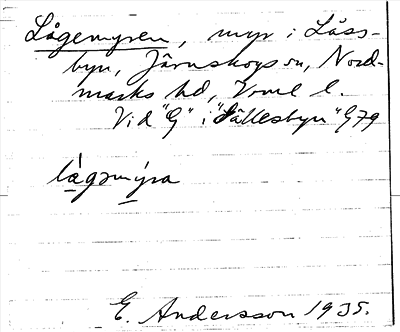 Lågemyren, myr i Låss-
byn, Järnskogs sn, Nord-
marks hd, Vrml l.
Vid "G" i "Sällesbyn" G79
lågəmýra
E. Andersson 1935.